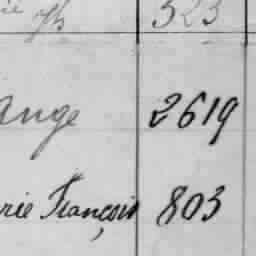 323
Ange 2619
rie François 803